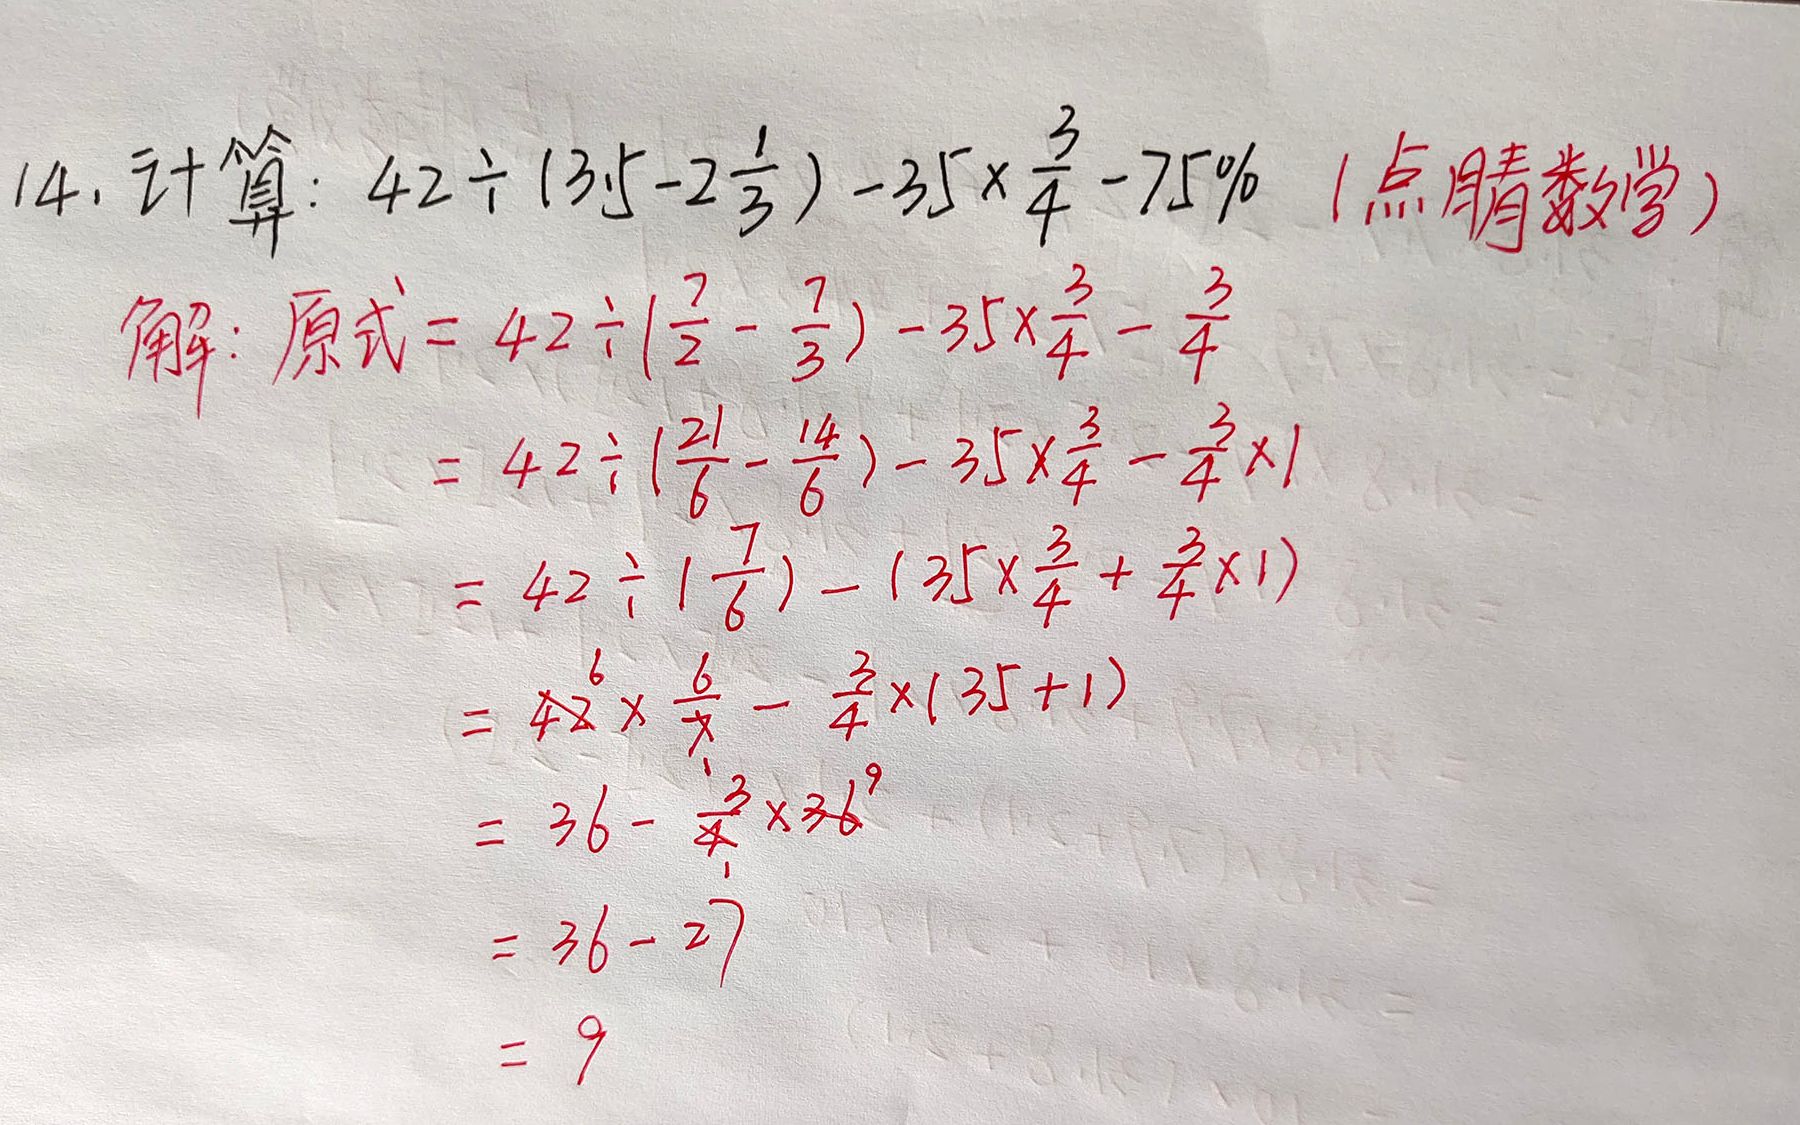 14. 计算: 42÷(3.5-2 1/3)-35×3/4-75% (点睛数学)
解: 原式=42÷(7/2-7/3)-35×3/4-3/4
=42÷(21/6-14/6)-35×3/4-3/4×1
=42÷(7/6)-(35×3/4+3/4×1)
=42 6×6/7 1-3/4×(35+1)
=36-3/4 1×36 9
=36-27
=9